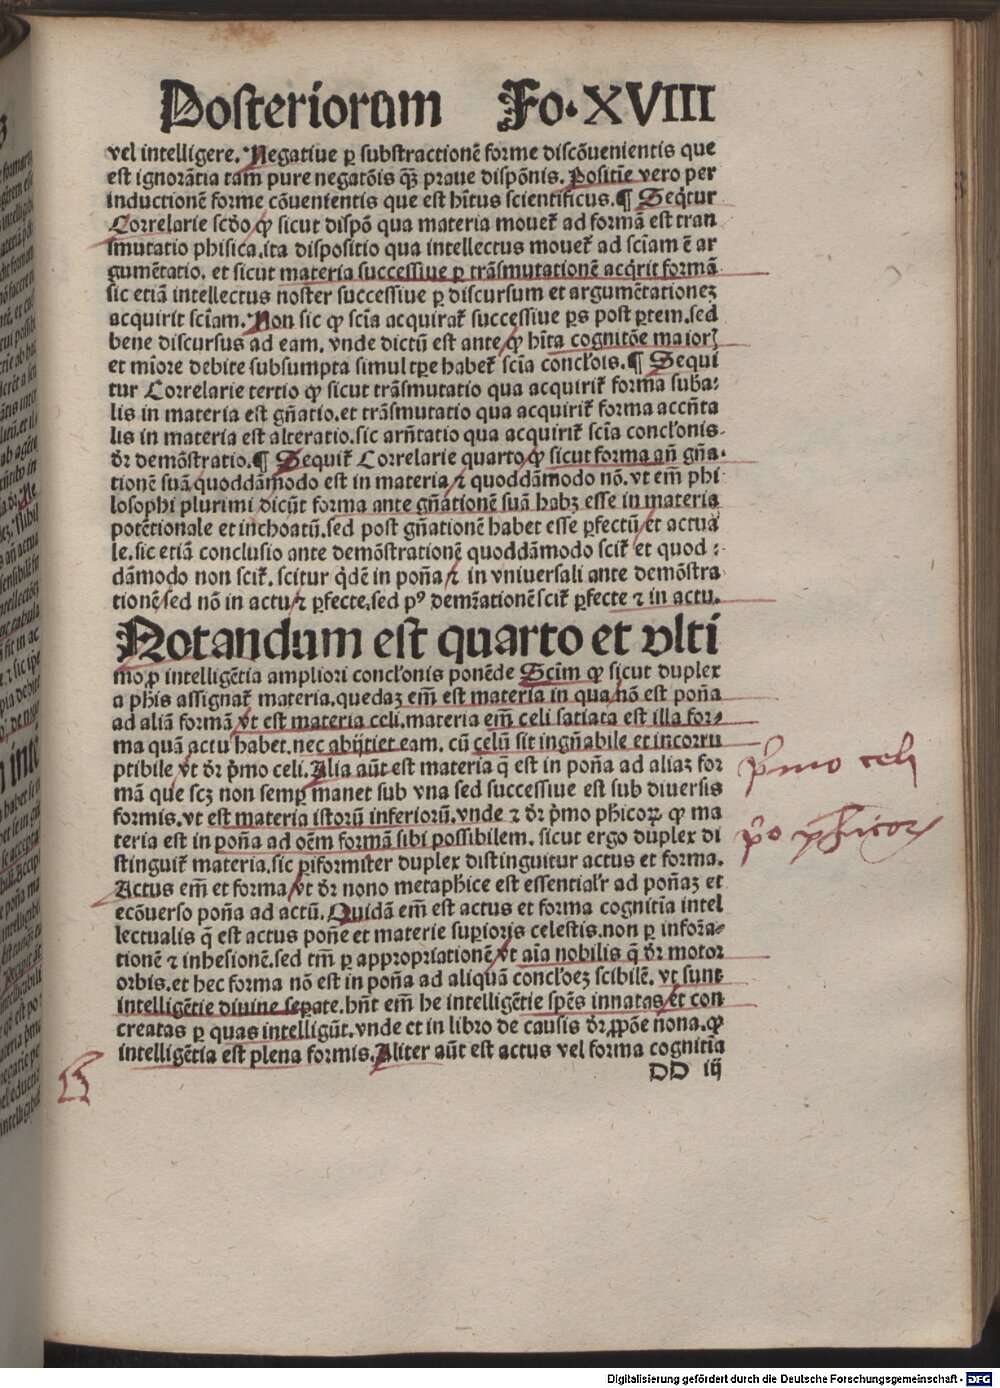 Posteriorum Fo. XVIII
vel intelligere. Negatiue ꝑ substractionē forme discōuenientis que
est ignorātia tam pure negatōis qȝ̄ praue dispōnis. Positīe vero per
inductionē forme cōuenientis que est hītus scientificus. ¶ Seqͥtur
Correlarie scd̄o ꝙ sicut dispō qua materia mouet᷑ ad formā est tran
smutatio phisica. ita dispositio qua intellectus mouet᷑ ad scīam ē ar
gumētatio. et sicut materia successiue ꝑ trāsmutationē acqͥrit formā
sic etiā intellectus noster successiue ꝑ discursum et argumētationeȝ
acquirit scīam. Non sic ꝙ scīa acquirat᷑ successiue ꝑs post ꝑtem. sed
bene discursus ad eam. vnde dictū est ante ꝙ hīta cognitōe maioꝝ
et mīore debite subsumpta simul tꝑe habet᷑ scīa concło̅is. ¶ Sequi
tur Correlarie tertio ꝙ sicut trāsmutatio qua acquirit᷑ forma subā⸗
lis in materia est gn̄atio. et trāsmutatio qua acquirit᷑ forma accn̄ta
lis in materia est alteratio. sic arn̄tatio qua acquirit᷑ scīa concło̅nis
dr̄ demōstratio. ¶ Sequit᷑ Correlarie quarto ꝙ sicut forma an̄ gn̄a⸗
tionē suā quoddāmodo est in materia ⁊ quoddāmodo nō. vt em̄ phi
losophi plurimi dicūt forma ante gn̄ationē suā habȝ esse in materia
potētionale et inchoatū. sed post gn̄ationē habet esse ꝑfectū et actua
le. sic etiā conclusio ante demōstrationē quoddāmodo scit᷑ et quod⸗
dāmodo non scit᷑. scitur qͥdē in pon̄a ⁊ in vniuersali ante demōstra
tionē sed nō in actu ⁊ ꝑfecte. sed pꝰ demr̄ationē scit᷑ ꝑfecte ⁊ in actu.
Notandum est quarto et vlti
mo ꝓ intelligētia ampliori concło̅nis ponēde Scīm ꝙ sicut duplex
a phīs assignat᷑ materia. quedaȝ em̄ est materia in qua nō est pon̄a
ad aliā formā vt est materia celi. materia em̄ celi satiata est illa for⸗
ma quā actu habet. nec abijtiet eam. cū celū sit ingn̄abile et incorru
ptibile vt dr̄ pͥmo celi. Alia aūt est materia q̄ est in pon̄a ad aliaȝ for
mā que scȝ non semꝑ manet sub vna sed successiue est sub diuersis
formis. vt est materia istorū inferiorū. vnde ⁊ dr̄ pͥmo phīcoꝝ ꝙ ma
teria est in pon̄a ad oēm formā sibi possibilem. sicut ergo duplex di
stinguit᷑ materia. sic ꝑiformiter duplex distinguitur actus et forma.
Actus em̄ et forma vt dr̄ nono metaphīce est essentialr̄ ad pon̄aȝ et
ecōuerso pon̄a ad actū. Quidā em̄ est actus et forma cognitīa intel
lectualis q̄ est actus pon̄e et materie suꝑioris celestis. non ꝑ infor̄a⸗
tionē ⁊ inhesionē. sed tm̄ ꝑ appropriationē vt aīa nobilis q̄ dr̄ motor
orbis. et hec forma nō est in pon̄a ad aliquā concło̅eȝ scibilē. vt sunt
intelligētie diuine seꝑate. hn̄t em̄ he intelligētie spēs innatas et con
creatas ꝑ quas intelligūt. vnde et in libro de causis dr̄. ꝓpōe nona. ꝙ
intelligētia est plena formis. Aliter aūt est actus vel forma cognitīa
DD iij
pͥmo celi
pͥo phīcoꝝ
Digitalisierung gefördert durch die Deutsche Forschungsgemeinschaft - DFG